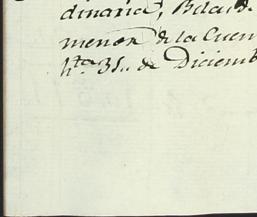 dinaria, Bda, de
menor de la Cuen
hta. 31,, de Diciemb